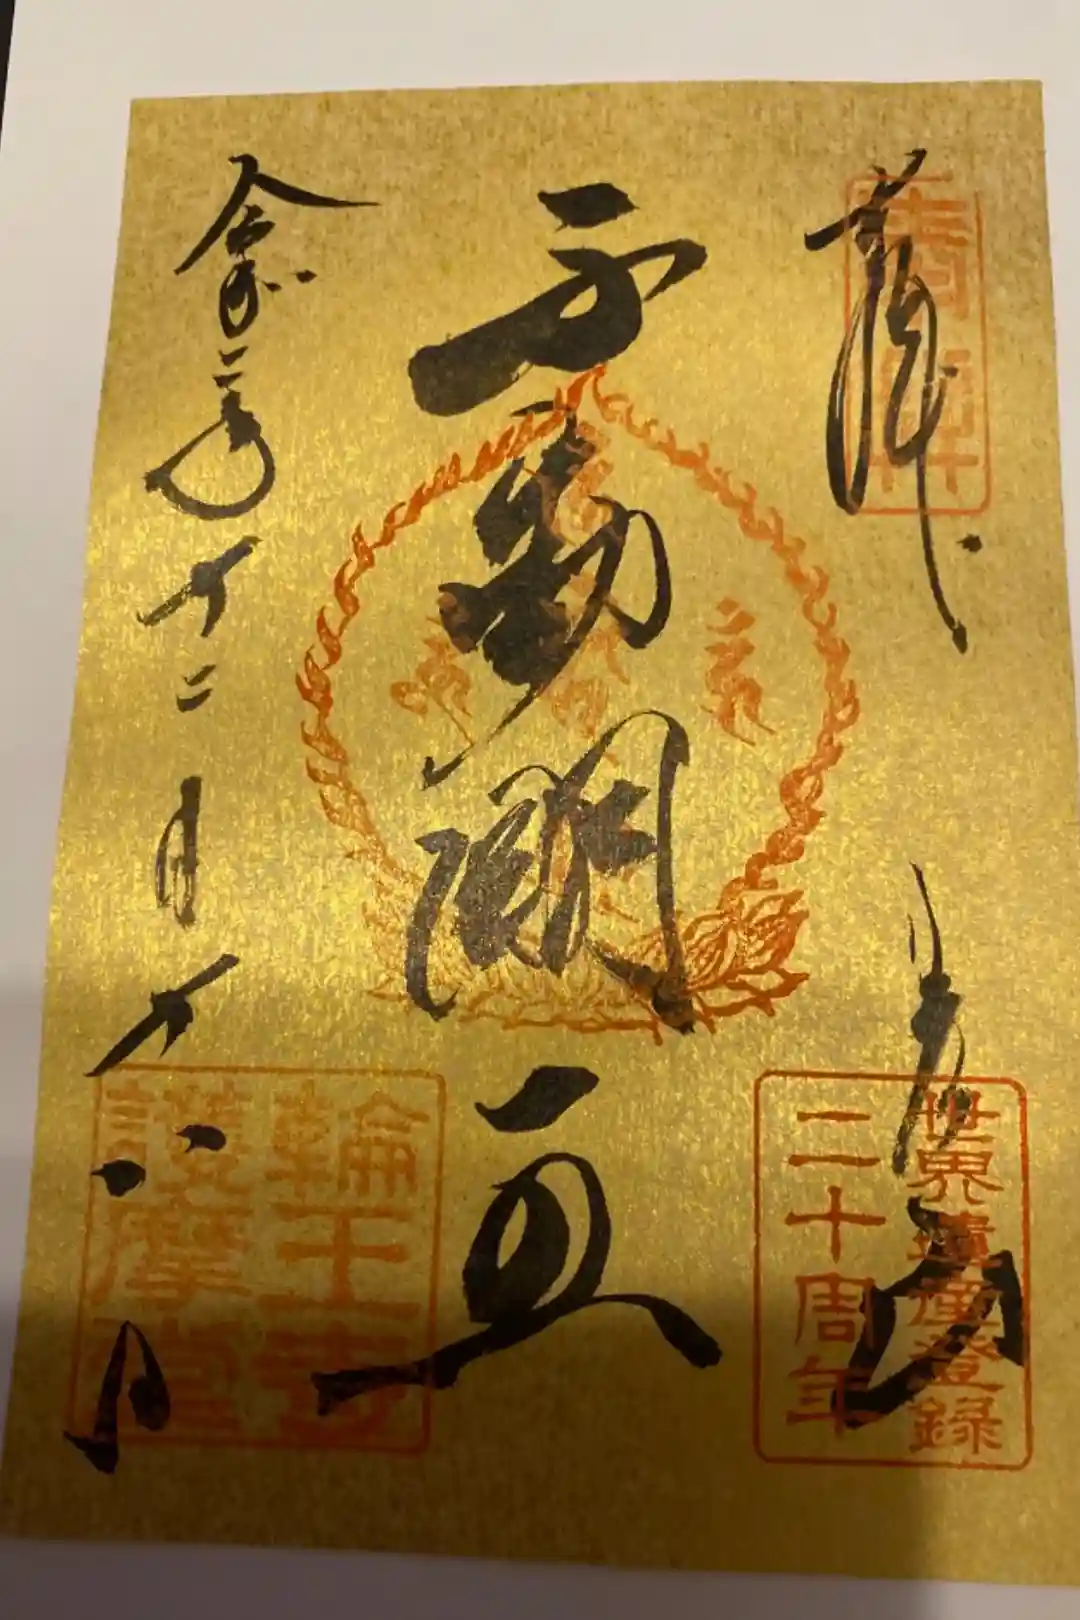 奉拝
日光山
世界遺産登録
二十周年
不動明王
令和二年十二月十二日
輪王寺
護摩堂